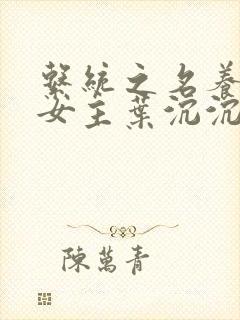 繫統之名養
女主葉沉沉
陳萬青